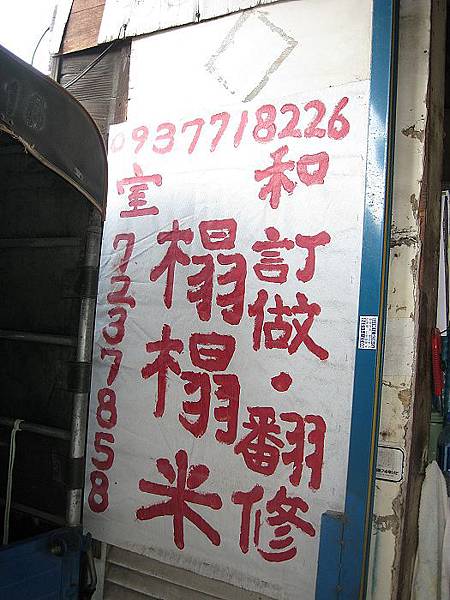 0937718226
和室
訂做・翻修
榻榻米
7237858